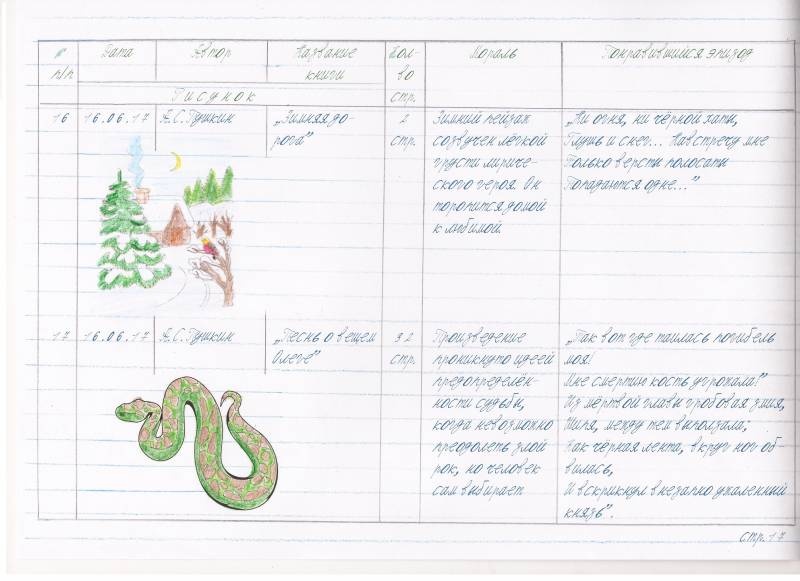 № п/п
Дата
Автор
Название книги
Кол-во стр.
Мораль
Понравившийся эпизод
Рисунок
16
16.06.17
А.С.Пушкин
„Зимняя до-
рога”
2
стр.
Зимний пейзаж
созвучен лёгкой
грусти лириче-
ского героя. Он
торопится домой
к любимой.
„Ни огня, ни чёрной хаты,
Глушь и снег... Навстречу мне
Только версты полосаты
Попадаются одне...”
17
16.06.17
А.С.Пушкин
„Песнь о вещем
Олеге”
32
стр.
Произведение
проникнуто идеей
предопределён-
ности судьбы,
когда невозможно
преодолеть злой
рок, но человек
сам выбирает
„Так вот где таилась погибель
моя!
Мне смертию кость угрожала!”
Из мёртвой главы гробовая змия,
Шипя, между тем выползала;
Как чёрная лента, вкруг ног об
вилась,
И вскрикнул внезапно ужаленный
князь”.
стр.17